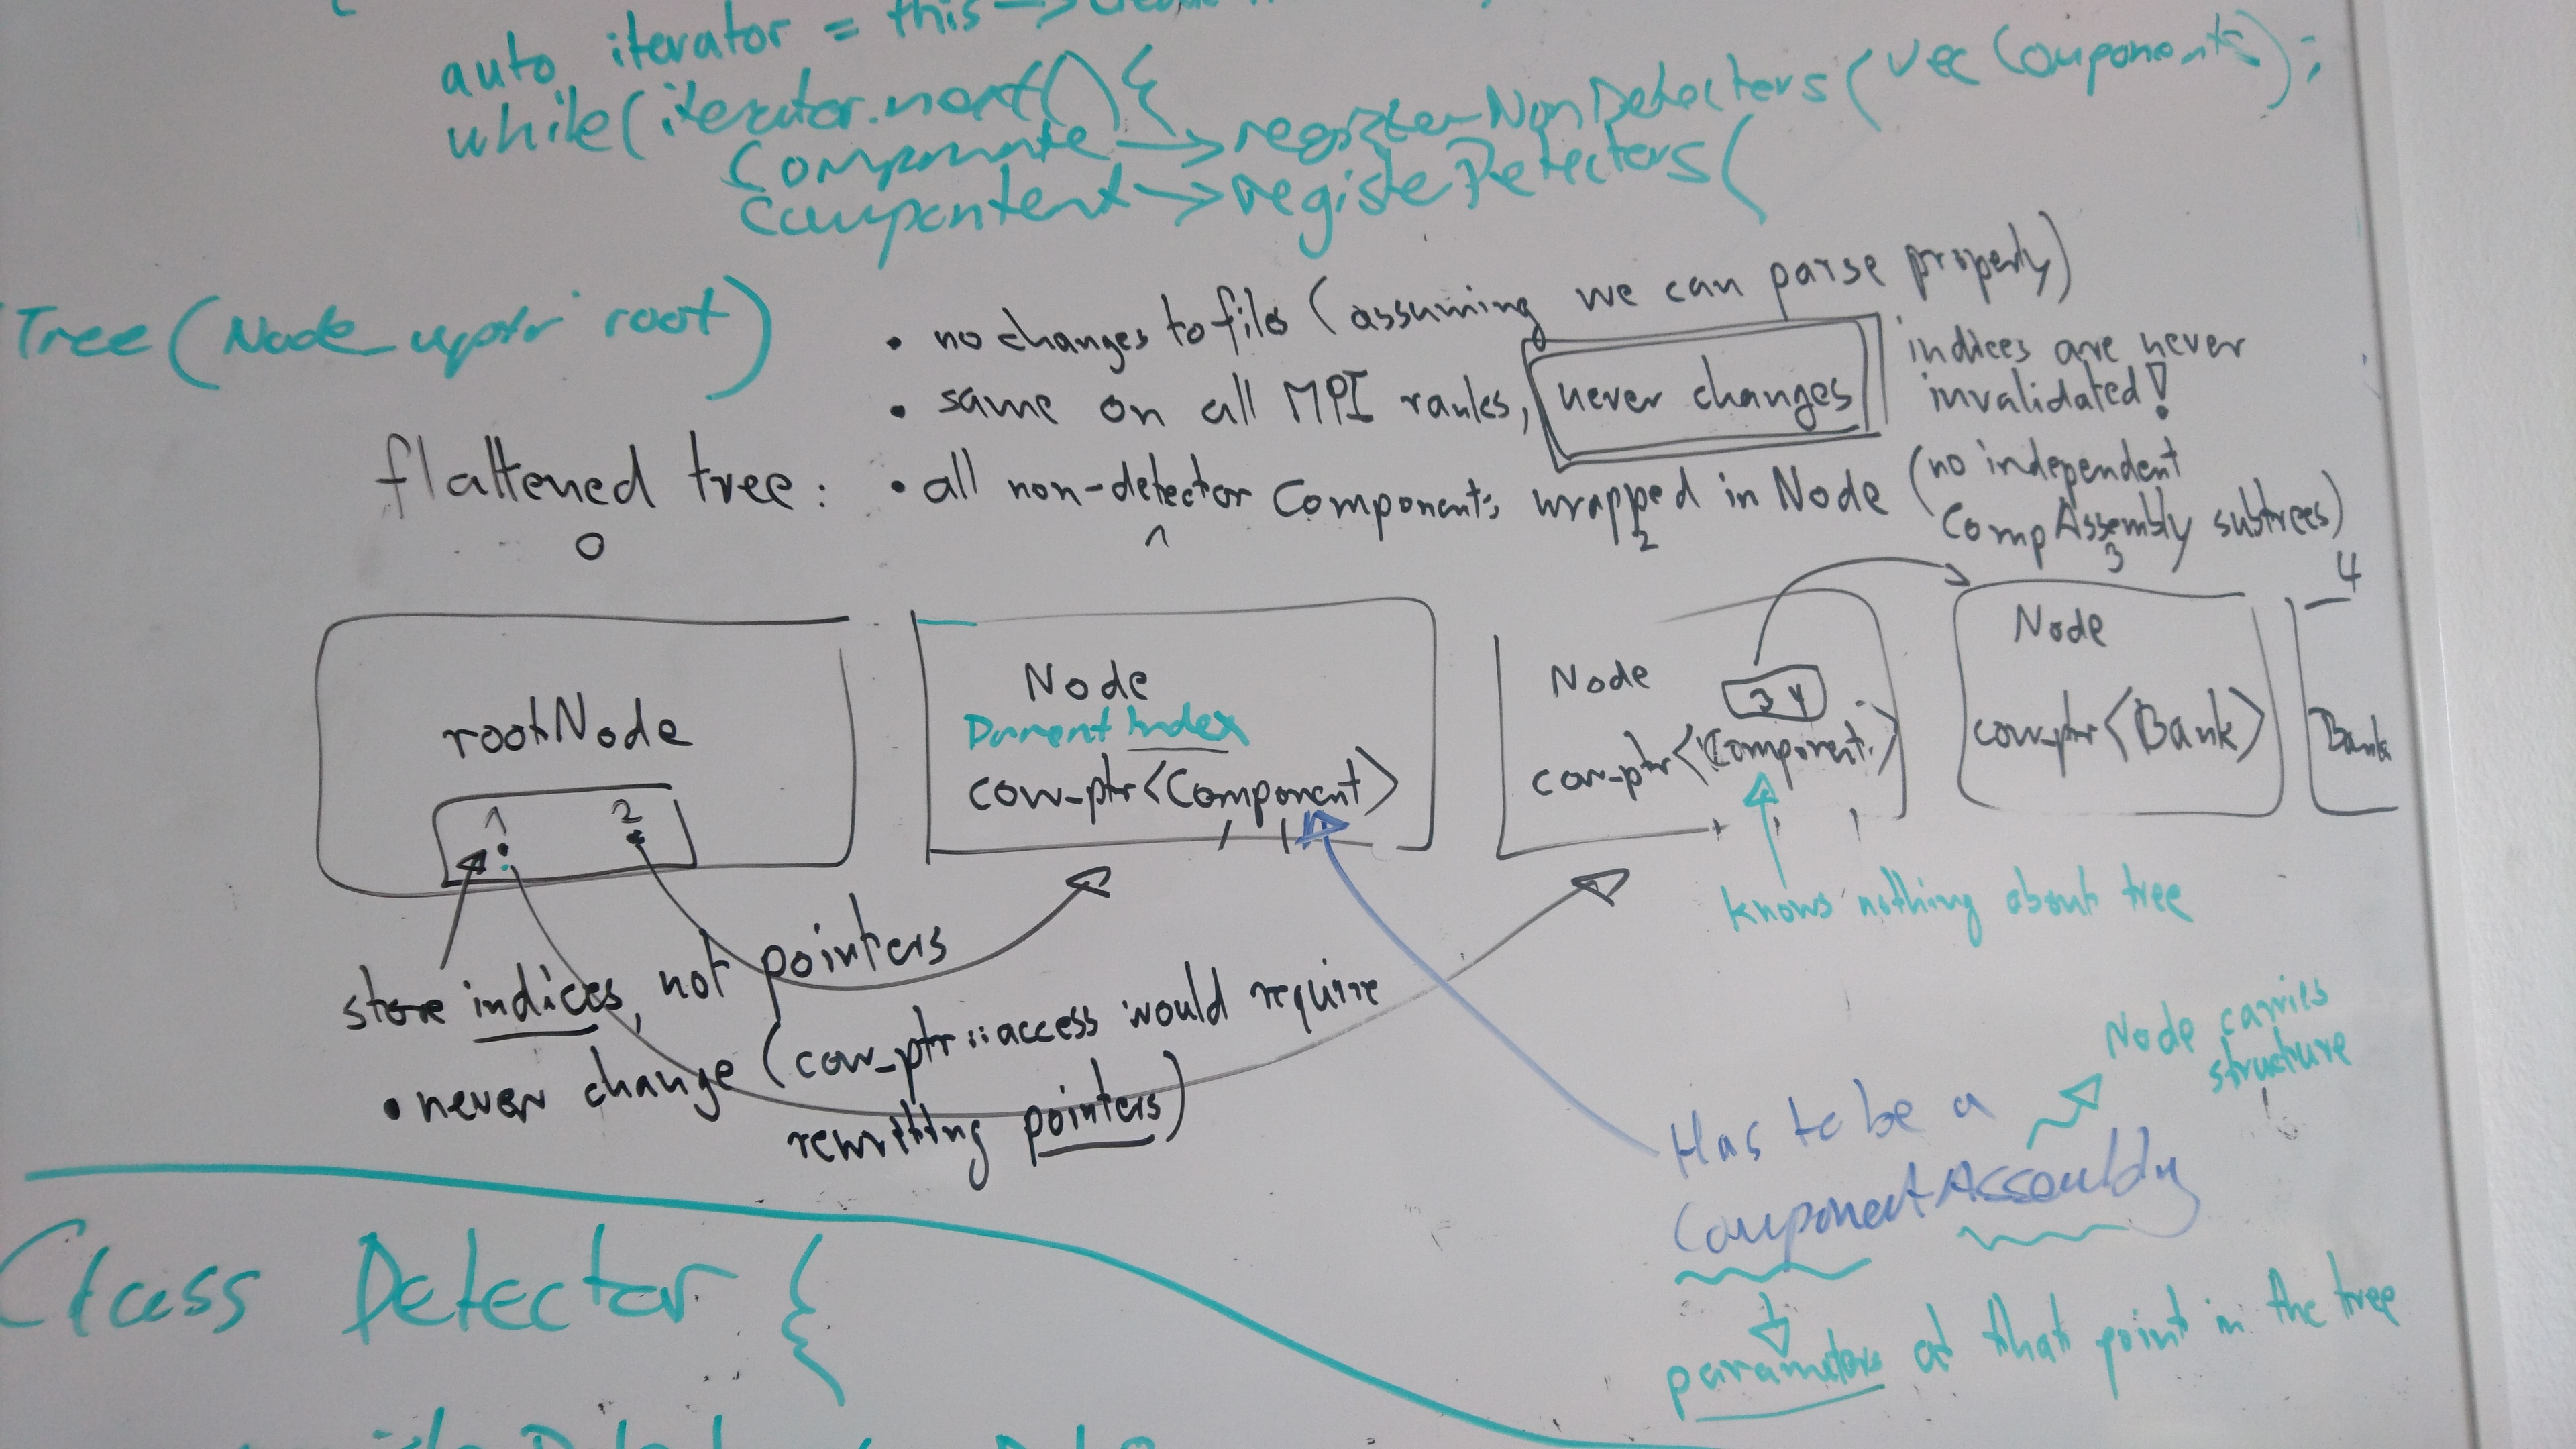 auto iterator = this ->
while(iterator.next() {
Componente -> registerNonDetecters(vec Components);
Compontent -> registeDetecters(
Tree (Node_uptr root)
• no changes to files (assuming we can parse properly)
• same on all MPI ranks, never changes
indices are never
invalidated!
flattened tree : • all non-detector Components wrapped in Node (no independent
CompAssembly subtrees)
0 1 2 3 4
rootNode
1 2
Node
Parent Index
cow_ptr<Component>
Node
3 4
cow_ptr<Component>
Node
cow_ptr<Bank>
Bank
knows nothing about tree
store indices, not pointers
• never change (cow_ptr::access would require
rewriting pointers)
Node carries
structure
Has to be a
ComponentAssembly
parameters at that point in the tree
Class Detector {